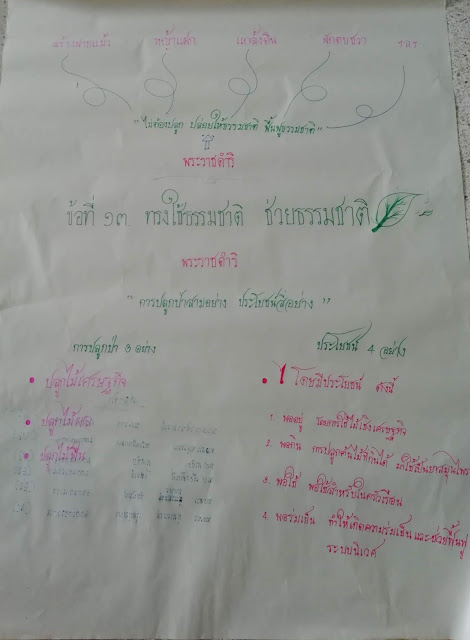 สร้างฝายแม้ว หญ้าแฝก แกล้งดิน ผักตบชวา ฯลฯ
"ไม่ต้องปลูก ปล่อยให้ธรรมชาติ ฟื้นฟูธรรมชาติ"
พระราชดำริ
ข้อที่ ๑๓. ทรงใช้ธรรมชาติ ช่วยธรรมชาติ
พระราชดำริ
"การปลูกป่าสามอย่าง ประโยชน์สี่อย่าง"
การปลูกป่า 3 อย่าง
• ปลูกไม้เศรษฐกิจ
• ปลูกไม้ผล
• ปลูกไม้ฟืน
ประโยชน์ 4 อย่าง
• โดยมีประโยชน์ ดังนี้
1. พออยู่ ไม้เชิงเศรษฐกิจ
2. พอกิน การปลูกต้นไม้ที่กินได้ มาใช้เป็นยาสมุนไพร
3. พอใช้ พอใช้สำหรับในครัวเรือน
4. พอร่มเย็น ทำให้เกิดความร่มเย็น และช่วยฟื้นฟู
ระบบนิเวศ